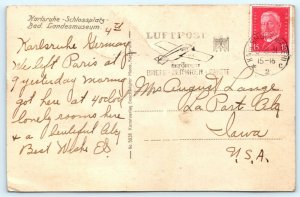 Karlsruhe - Schlossplatz
Bad. Landesmuseum
Karlsruhe Germany
We left Paris at
9 yesterday morning
got here at 400
lonely rooms here
& a beautiful city
Best Wishes
LUFTPOST
BRIEFE ZEITUNGEN
15-16
15 15
Mrs August Lange
La Port City
Iowa
U.S.A.